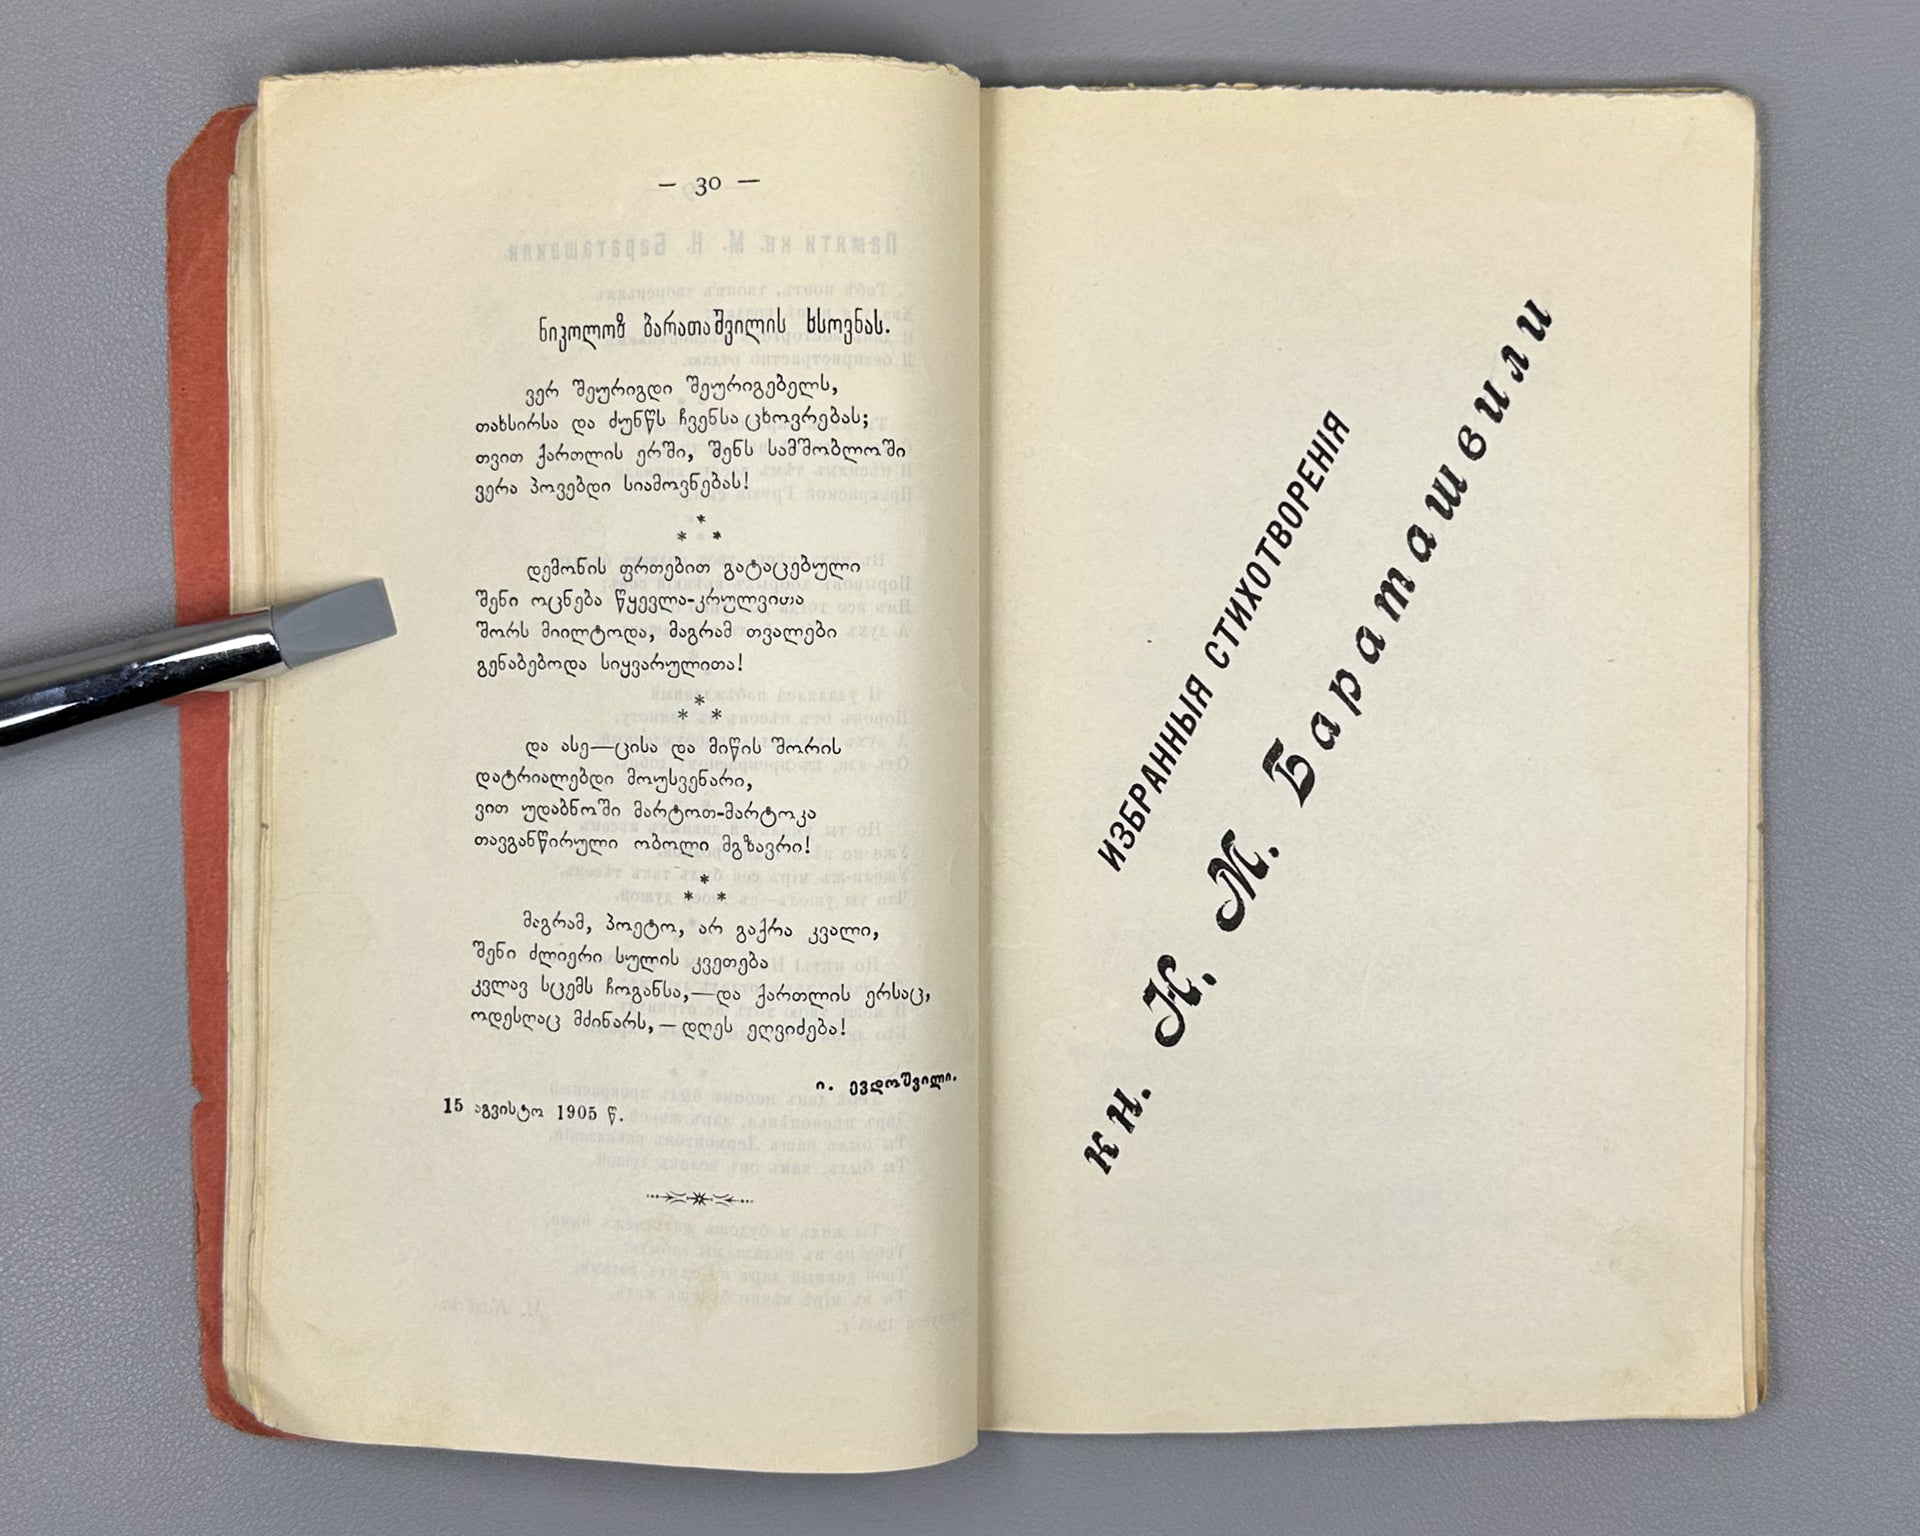 — 30 —
ნიკოლოზ ბარათაშვილის ხსოვნას.
ვერ შეურიგდი შეურიგებელს,
თახსირსა და ძუნწს ჩვენსა ცხოვრებას;
თვით ქართლის ერში, შენს სამშობლოში
ვერა პოვებდი სიამოვნებას!
*
* *
დემონის ფრთებით გატაცებული
შენი ოცნება წყევლა-კრულვითა
შორს მიილტოდა, მაგრამ თვალები
გენაბებოდა სიყვარულითა!
*
* *
და ასე—ცისა და მიწის შორის
დატრიალებდი მოუსვენარი,
ვით უდაბნოში მარტოთ-მარტოკა
თავგანწირული ობოლი მგზავრი!
*
* *
მაგრამ, პოეტო, არ გაქრა კვალი,
შენი ძლიერი სულის კვეთება
კვლავ სცემს ჩოგანსა,—და ქართლის ერსაც,
ოდესღაც მძინარს,—დღეს ეღვიძება!
ი. ევდოშვილი.
15 აგვისტო 1905 წ.
ИЗБРАННЫЯ СТИХОТВОРЕНІЯ
кн. Н. М. Бараташвили